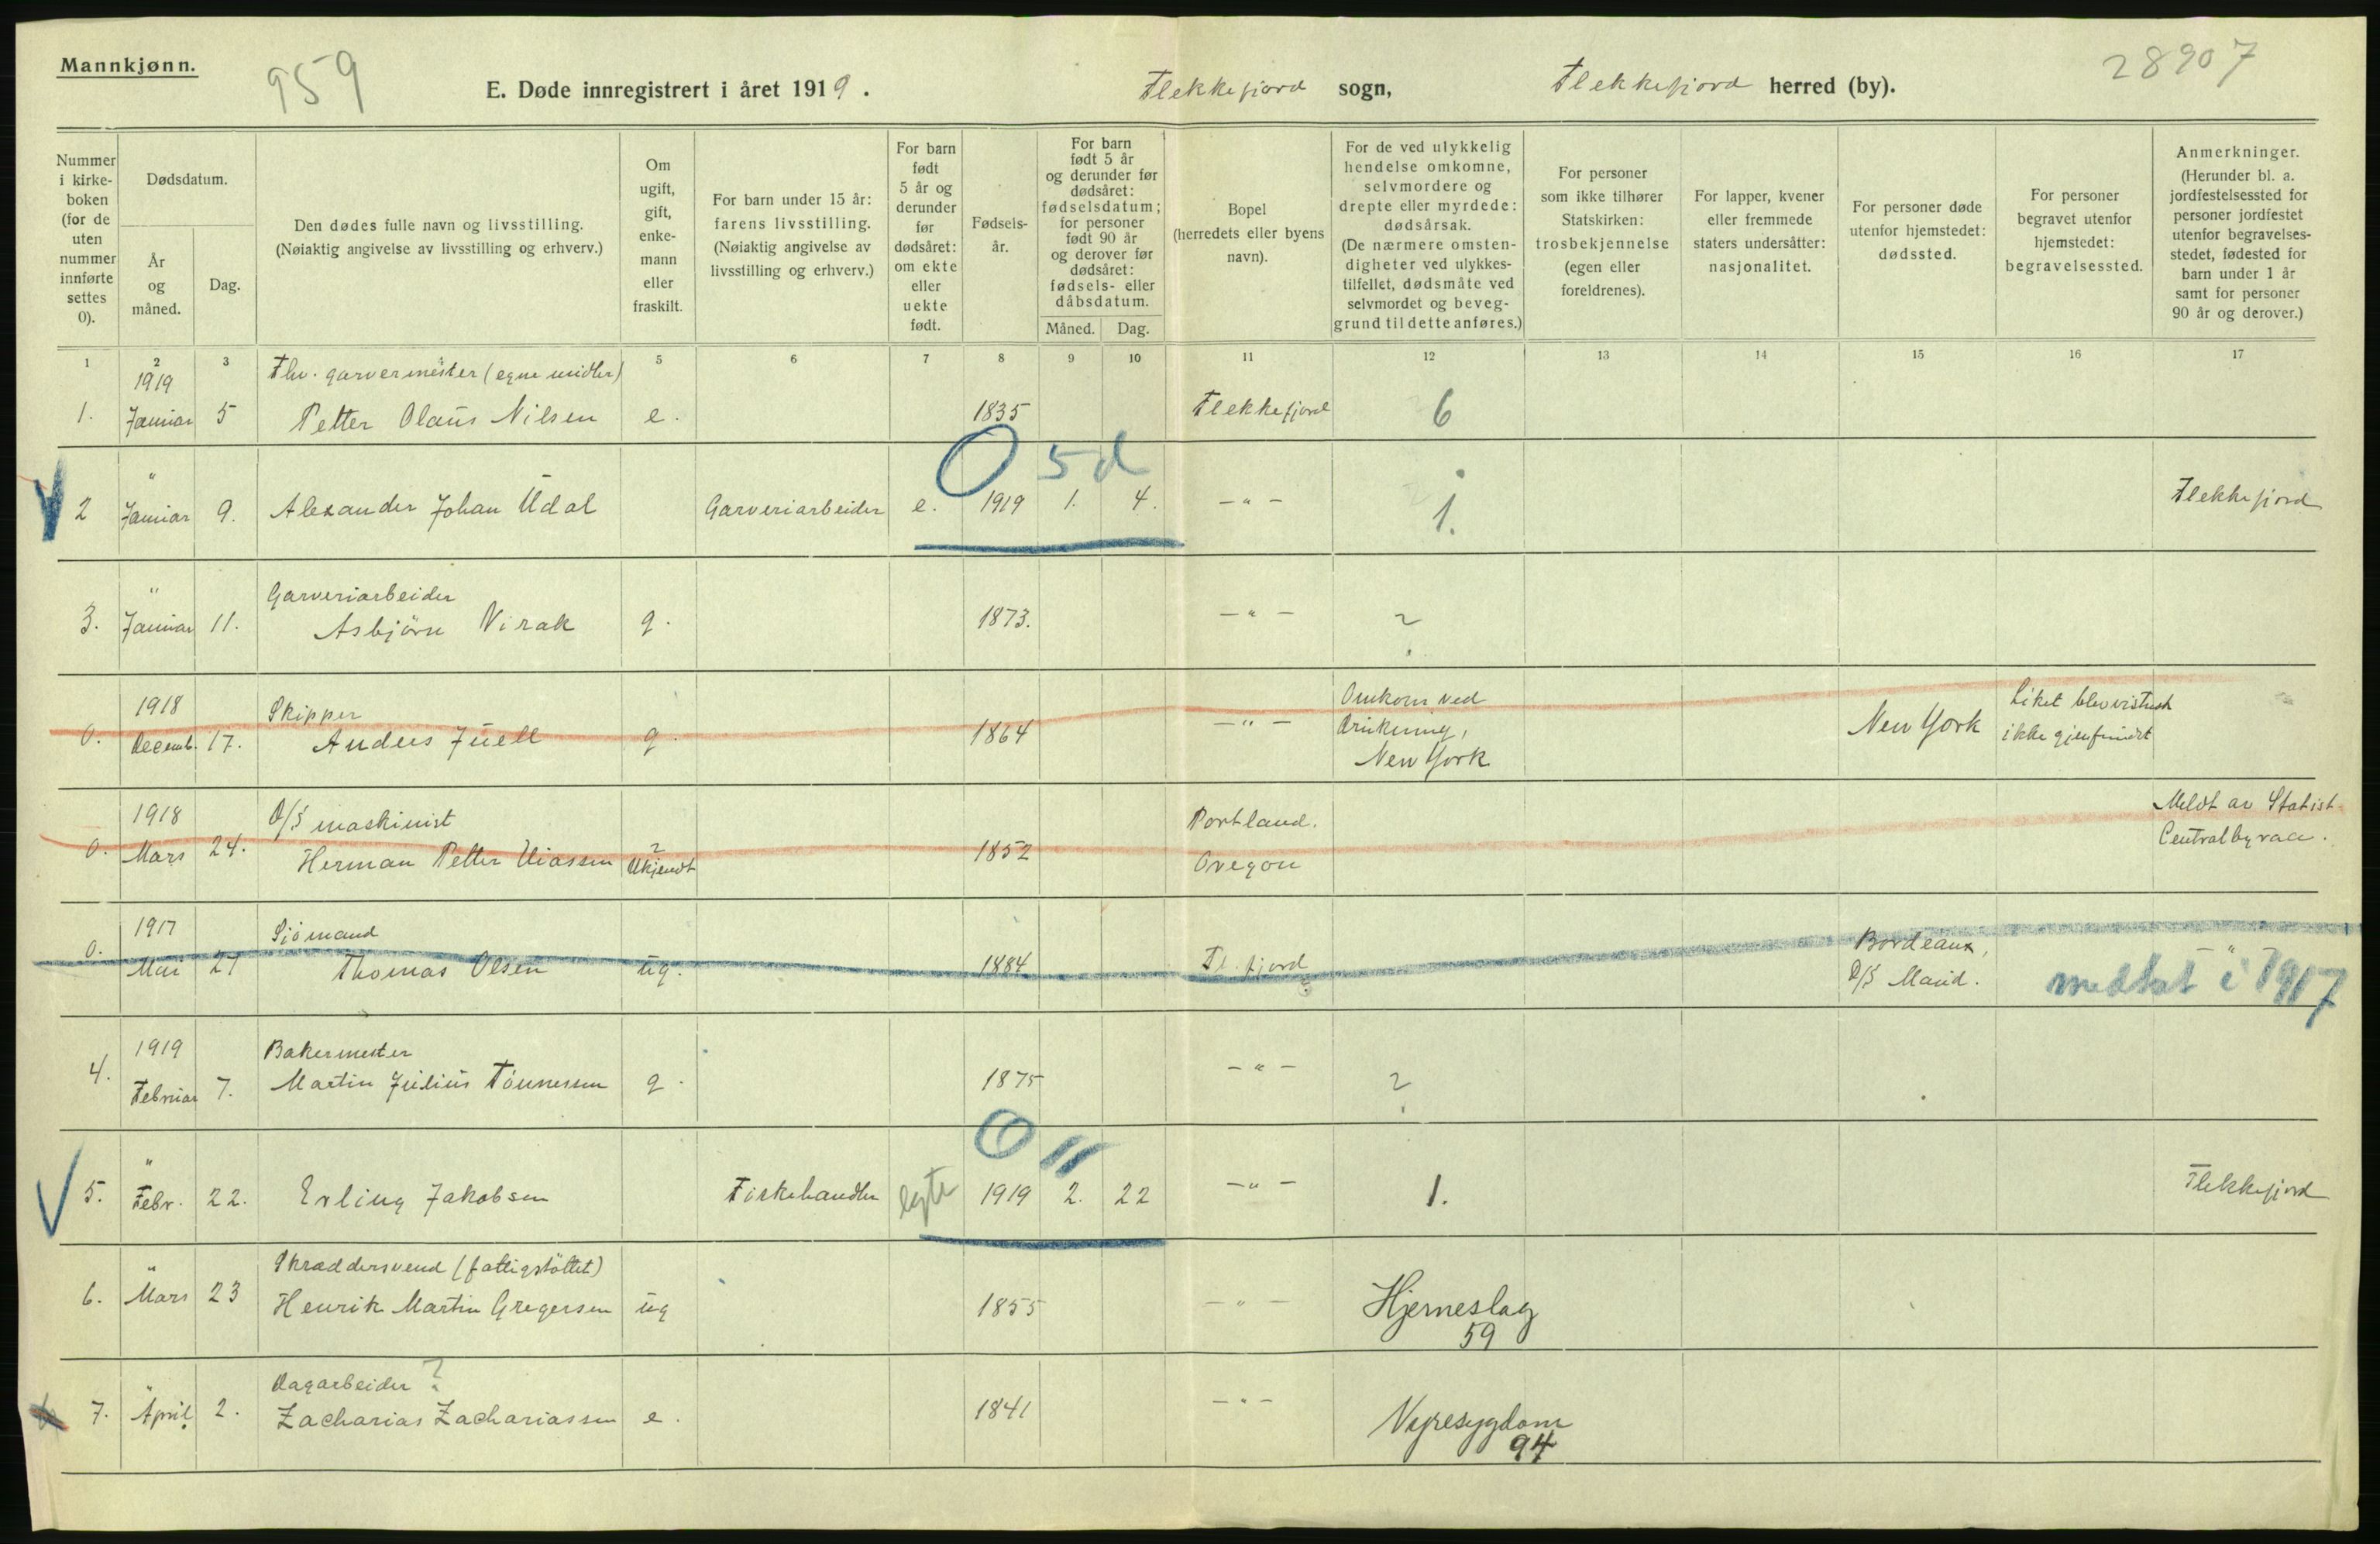 Mannkjønn.
959
E. Døde innregistrert i året 1919.
Flekkefjord sogn,
Flekkefjord herred (by).
28907
Nummer i kirke-boken (for de uten nummer innførte settes 0).
Dødsdatum.
År og måned.
Dag.
Den dødes fulle navn og livsstilling.
(Nøiaktig angivelse av livsstilling og erhverv.)
Om ugift, gift, enke-mann eller fraskilt.
For barn under 15 år: farens livsstilling. (Nøiaktig angivelse av livsstilling og erhverv.)
For barn født 5 år og derunder før dødsåret: om ekte eller uekte født.
Fødsels-år.
For barn født 5 år og derunder før dødsåret: fødselsdatum; for personer født 90 år og derover før dødsåret: fødsels- eller dåbsdatum.
Måned.
Dag.
Bopel (herredets eller byens navn).
For de ved ulykkelig hendelse omkomne, selvmordere og drepte eller myrdede: dødsårsak. (De nærmere omsten-digheter ved ulykkes-tilfellet, dødsmåte ved selvmordet og beveg-grund til dette anføres.)
For personer som ikke tilhører Statskirken: trosbekjennelse (egen eller foreldrenes).
For lapper, kvener eller fremmede staters undersåtter: nasjonalitet.
For personer døde utenfor hjemstedet: dødssted.
For personer begravet utenfor hjemstedet: begravelsessted.
Anmerkninger. (Herunder bl. a. jordfestelsessted for personer jordfestet utenfor begravelses-stedet, fødested for barn under 1 år samt for personer 90 år og derover.)
1 2 3 5 6 7 8 9 10 11 12 13 14 15 16 17
1919 Fhv. garvermester (egne midler)
1. Januar 5 Petter Olaus Nilsen e. 1835 Flekkefjord 6
O 5 d
"
2 Januar 9. Alexander Johan Udal Garveriarbeider e. 1919 1. 4. —"— 1. Flekkefjord
" Garveriarbeider
3. Januar 11. Asbjørn Virak g. 1873. —"— ?
1918 Skipper Omkom ved Liket blev
0. Decemb. 17. Anders Juell g. 1864 —"— drukning, New York ikke gjenfundet
New York
1918 D/S maskinist Portland. Meldt av Statist.
0. Mars 24. Herman Petter ? Ukjendt 1852 Oregon Centralbyraa.
1917 Sjømand Bordeaux,
0. Mai 27 Thomas Olsen ug. 1884 Fl.fjord D/S Maud. —"—
medtat i 1917
1919 Bakermester
4. Februar 7. Martin Julius Tønnessen g. 1875 —"— ?
O 11
"
5. Febr. 22. Erling Jakobsen Fiskehandler egte 1919 2. 22 —"— 1. Flekkefjord
" Skræddersvend (fattigstøttet)
6. Mars 23 Henrik Martin Gregersen ug 1855 —"— Hjerneslag
59
" Dagarbeider ?
7. April 2. Zacharias Zachariassen e. 1841 —"— Nyresygdom
94